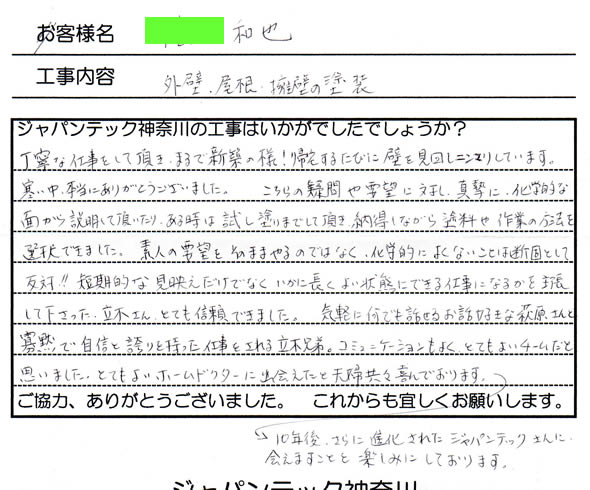 お客様名 和也
工事内容 外壁、屋根・擁壁の塗装
ジャパンテック神奈川の工事はいかがでしたでしょうか？
丁寧な仕事をして頂き、まるで新築の様！帰宅するたびに壁を見回しニンマリしています。
寒い中、本当にありがとうございました。 こちらの疑問や要望に対し、真摯に、化学的な
面から説明して頂いたり、ある時は試し塗りまでして頂き、納得しながら塗料や作業の方法を
選択できました。 素人の要望をそのままやるのではなく、化学的によくないことは断固として
反対!! 短期的な見映えだけでなく いかに長くよい状態にできる仕事になるかを主張
して下さった、立木さん、とても信頼できました。 気軽に何でも話せるお話好きな萩原さんと
寡黙で自信と誇りを持った仕事をされる立木兄弟。コミュニケーションもよく、とてもよいチームだと
思いました。とてもよいホームドクターに出会えたと夫婦共々喜んでおります。
ご協力、ありがとうございました。 これからも宜しくお願いします。
10年後、さらに進化されたジャパンテックさんに、
会えますことを楽しみにしております。
ジャパンテック神奈川